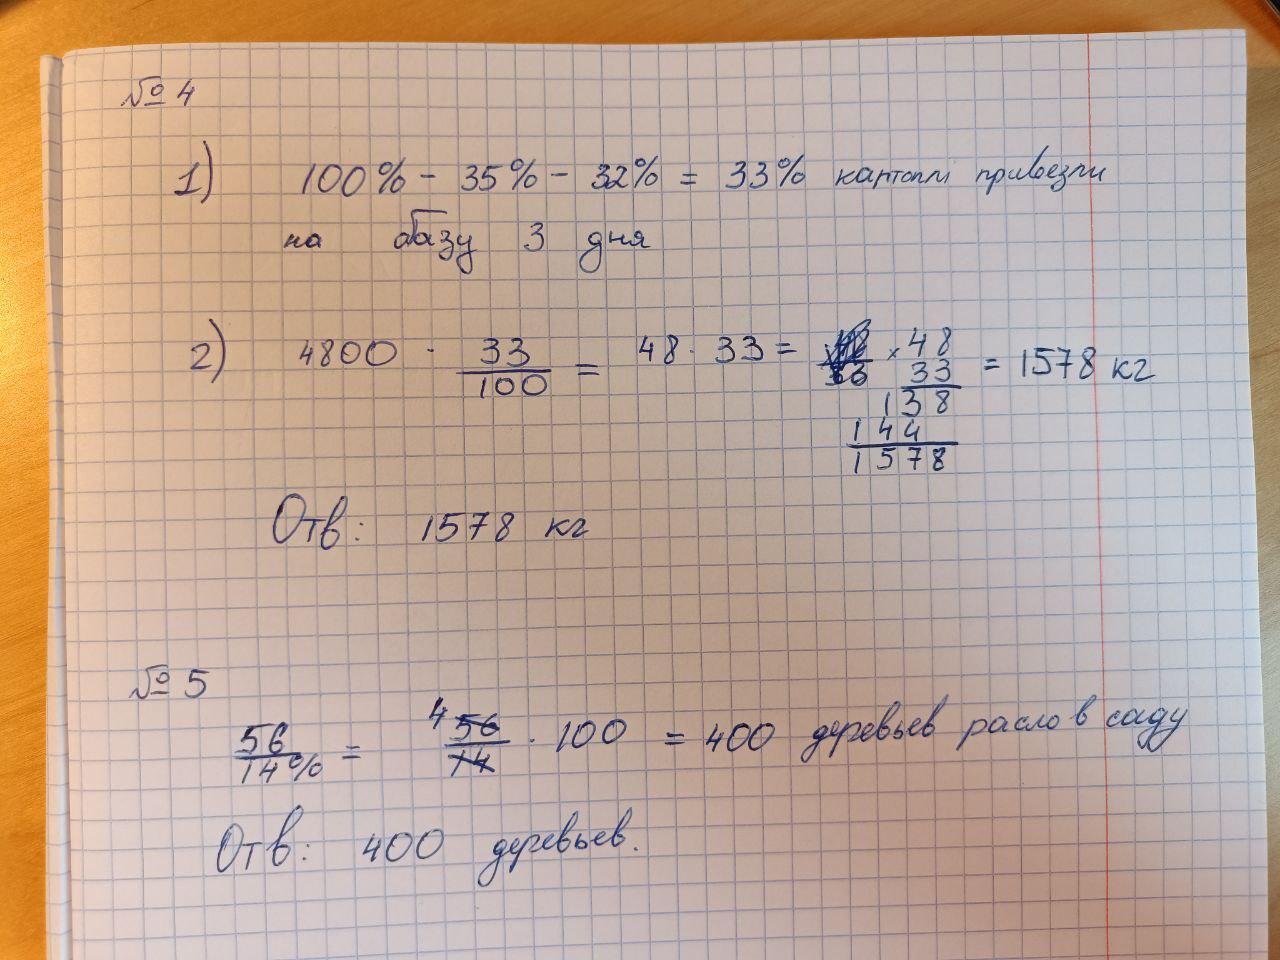 № 4
1) 100% - 35% - 32% = 33% картопл привезли
на базу 3 дня
2) 4800 · 33/100 = 48 · 33 = × 48 = 1578 кг
33
138
144
1578
Отв: 1578 кг
№ 5
56/14% = 4 56/14 · 100 = 400 деревьев расло в саду
Отв: 400 деревьев.